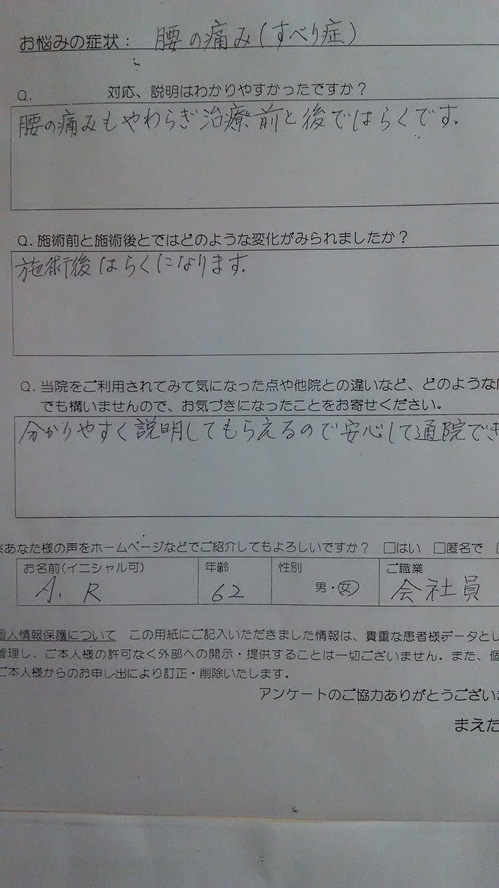 お悩みの症状： 腰の痛み(すべり症)
Q. 対応、説明はわかりやすかったですか？
腰の痛みもやわらぎ治療前と後ではらくです。
Q. 施術前と施術後とではどのような変化がみられましたか？
施術後はらくになります。
Q. 当院をご利用されてみて気になった点や他院との違いなど、どのような
でも構いませんので、お気づきになったことをお寄せください。
分かりやすく説明してもらえるので安心して通院でき
あなた様の声をホームページなどでご紹介してもよろしいですか？ □はい □匿名で
お名前(イニシャル可) 年齢 性別 ご職業
A. R 62 男・女 会社員
個人情報保護について この用紙にご記入いただきました情報は、貴重な患者様データとし
管理し、ご本人様の許可なく外部への開示・提供することは一切ございません。また、個
ご本人様からのお申し出により訂正・削除いたします。
アンケートのご協力ありがとうござい
まえだ